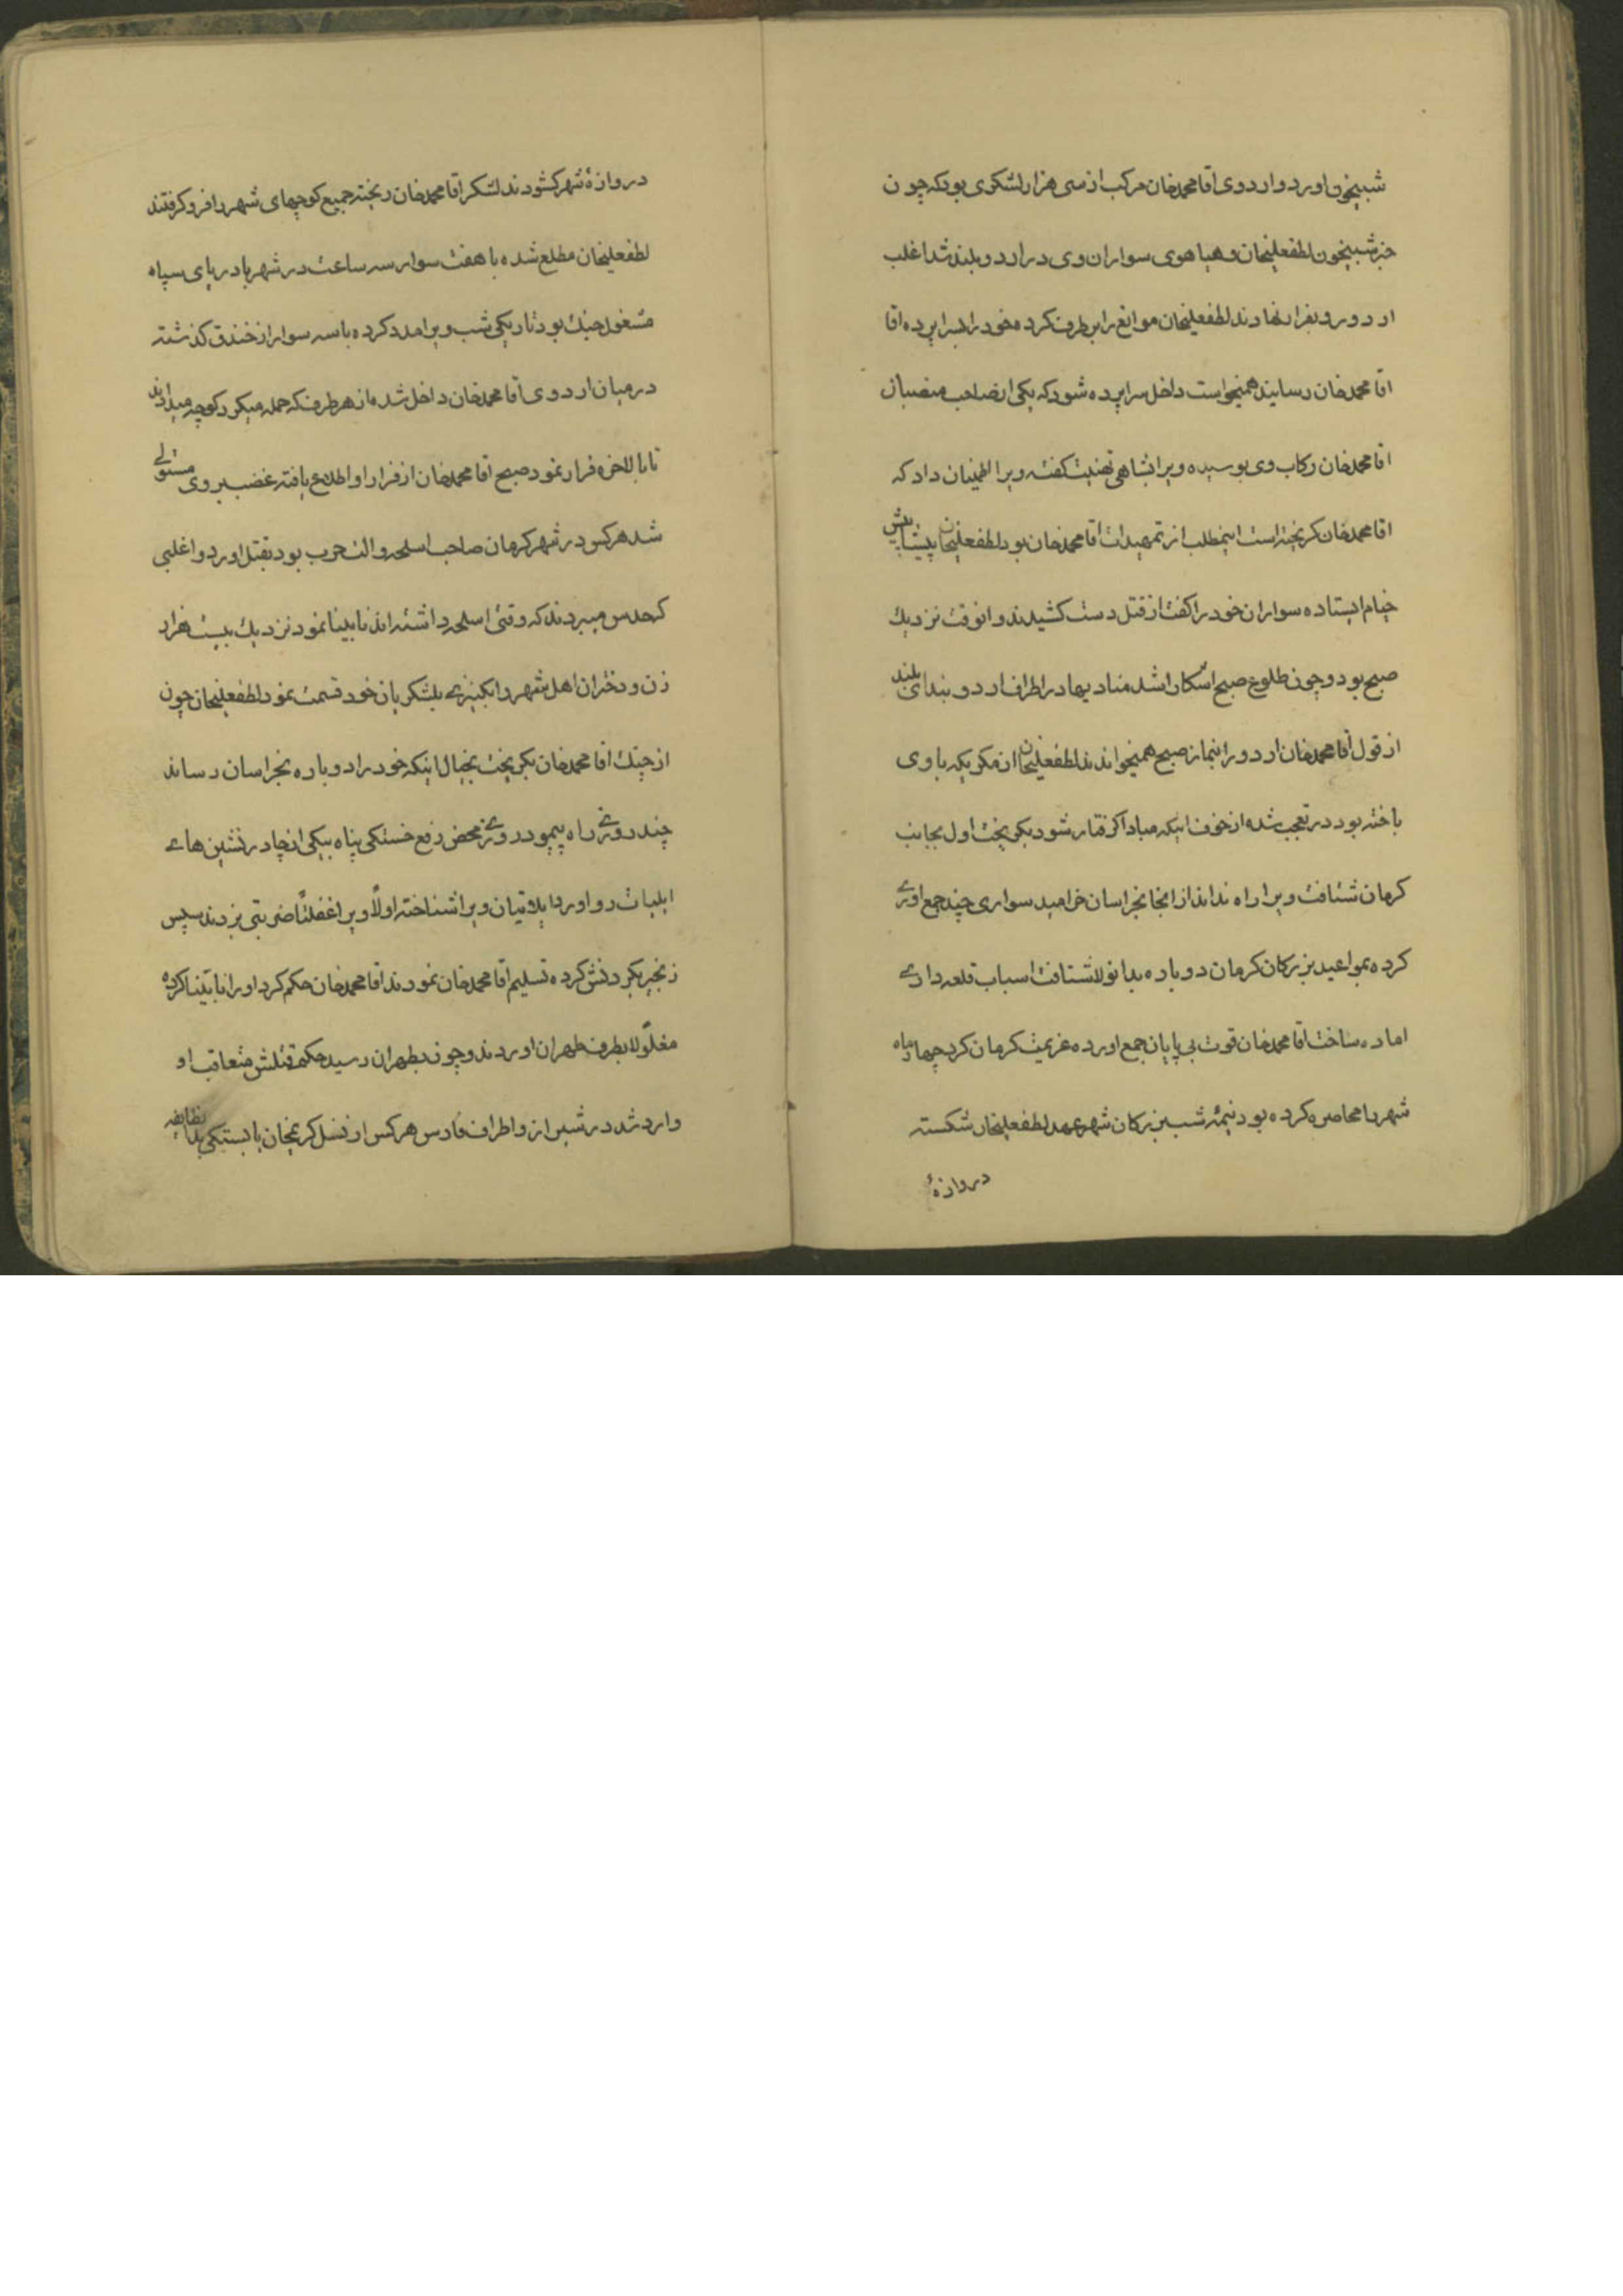 شبیخون اورد و اردوی اقا محمدخان مرکب از سی هزار لشکری بود که چون
خبر شبیخون لطفعلیخان و هیاهوی سواران وی در اردو بلند شد اغلب
اردو رو بفرار نهادند لطفعلیخان موانع را بر طرف کرده خود را بسراپرده اقا
اقا محمدخان رسانید همیخواست داخل سراپرده شود که یکی از صاحب منصبان
اقا محمدخان رکاب وی بوسیده ویرا بشاهی تهنیت گفته ویرا اطمینان داد که
اقا محمدخان کریخته است اینمطلب از تمهیدات اقا محمدخان بود لطفعلیخان پیشاپیش
خیام ایستاده سواران خود را کفت از قتل دست کشیدند و انوقت نزدیک
صبح بود و چون طلوع صبح اشکارا شد منادیها در اطراف اردو بندای بلند
از قول اقا محمدخان اردو را بنماز صبح همیخواندند لطفعلیخان از مکریکه با وی
باخته بود در تعجب شده از خوف اینکه مبادا کرفتار شود بکریخت اول بجانب
کرمان شتافت ویرا راه ندادند از انجا بخراسان خرامید سواری چند جمع اوری
کرده بمواعید بزرکان کرمان دوباره بدانولا شتافت اسباب قلعه داری
اماده ساخت اقا محمدخان قوت بی پایان جمع اورده عزیمت کرمان کرد چهار ماه
شهر را محاصره کرده بود نیمه شب بزرکان شهر عهد لطفعلیخان شکسته
دروازهٔ
دروازهٔ شهر کشودند لشکر اقا محمدخان ریخته جمیع کوچهای شهر را فرو کرفتند
لطفعلیخان مطلع شده با هفت سوار سه ساعت در شهر با دریای سپاه
مشغول جنک بود تاریکی شب ویرا مدد کرده با سه سوار از خندق کذشته
در میان اردوی اقا محمدخان داخل شده از هر طرف که حمله میکرد کوچه میدادند
تا بالاخره فرار نمود صبح اقا محمدخان از فرار او اطلاع یافته غضب بر وی مستولی
شد هر کس در شهر کرمان صاحب اسلحه و الت حرب بود بقتل اورد و اغلبی
که حدس میبردند که وقتی اسلحه داشته اند نابینا نمود نزدیک بیست هزار
زن و دختران اهل شهر را بکنیزی بلشکریان خود قسمت نمود لطفعلیخان چون
از جنک اقا محمدخان بکریخت بخیال اینکه خود را دوباره بخراسان رساند
چند روزی راه پیمود روزی محض رفع خستکی پناه بیکی از چادرنشین های
ایلیات رو اورد ایلاتیان ویرا شناخته اولاً ویرا غفلتاً ضربتی بزدند سپس
زنجیر بکردنش کرده تسلیم اقا محمدخان نمودند اقا محمدخان حکم کرد او را نابینا کرده
مغلولا بطرف طهران اوردند و چون بطهران رسید حکم قتلش متعاقب او
وارد شد در شیراز و اطراف فارس هر کس از نسل کریمخان یا بستکی بدان طایفه